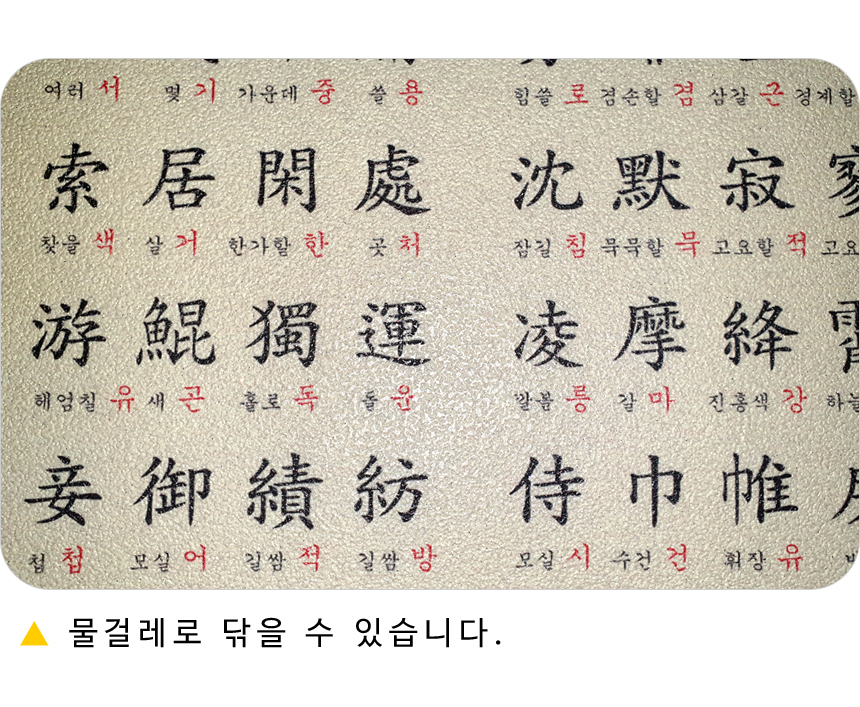 여러 서 몇 기 가운데 중 쓸 용 힘쓸 로 겸손할 겸 삼갈 근 경계할
索 居 閑 處 沈 默 寂 寥
찾을 색 살 거 한가할 한 곳 처 잠길 침 묵묵할 묵 고요할 적 고요
游 鯤 獨 運 凌 摩 絳
헤엄칠 유 새 곤 홀로 독 돌 운 깔볼 릉 갈 마 진홍색 강 하늘
妾 御 績 紡 侍 巾 帷
첩 첩 모실 어 길쌈 적 길쌈 방 모실 시 수건 건 휘장 유
물걸레로 닦을 수 있습니다.